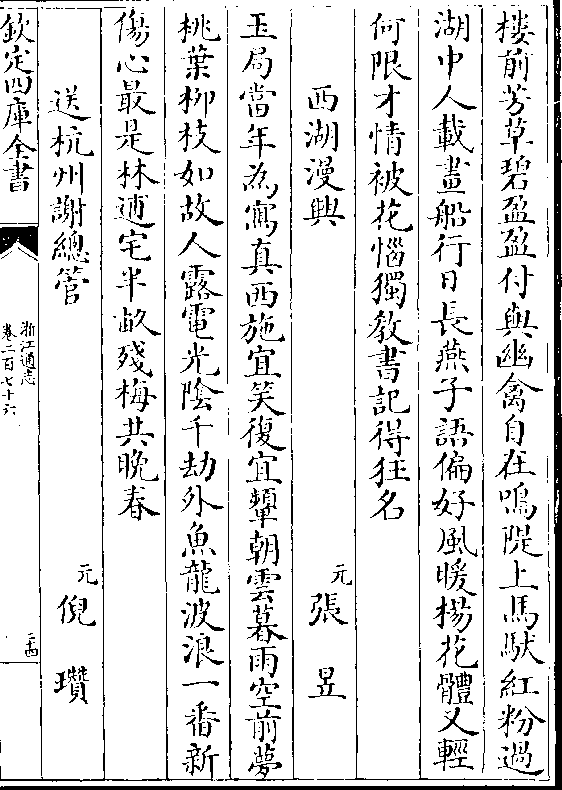 樓前芳草碧盈盈付與幽禽自在鳴隄上馬馱紅粉過
湖中人載畫船行日長燕子語偏好風暖楊花體又輕
何限才情被花惱獨教書記得狂名
西湖漫興 元 張昱
玉局當年為寫真西施宜笑復宜顰朝雲暮雨空前夢
桃葉柳枝如故人露電光陰千劫外魚龍波浪一番新
傷心最是林逋宅半畝殘梅共晚春
送杭州謝總管 元 倪瓚
欽定四庫全書
浙江通志
卷二百七十六
二四